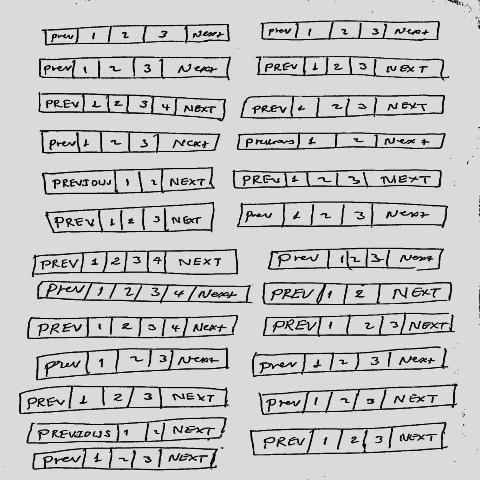 Prev 1 2 3 Next
Prev 1 2 3 Next
Prev 1 2 3 Next
PREV 1 2 3 NEXT
PREV 1 2 3 4 NEXT
PREV 1 2 3 NEXT
Prev 1 2 3 Next
Previous 1 2 Next
PREVIOUS 1 2 NEXT
PREV 1 2 3 NEXT
PREV 1 2 3 NEXT
Prev 1 2 3 Next
PREV 1 2 3 4 NEXT
Prev 1 2 3 Next
PREV 1 2 3 4 Next
PREV 1 2 NEXT
PREV 1 2 3 4 Next
PREV 1 2 3 NEXT
Prev 1 2 3 Next
Prev 1 2 3 Next
PREV 1 2 3 NEXT
Prev 1 2 3 NEXT
PREVIOUS 1 2 NEXT
PREV 1 2 3 NEXT
Prev 1 2 3 Next